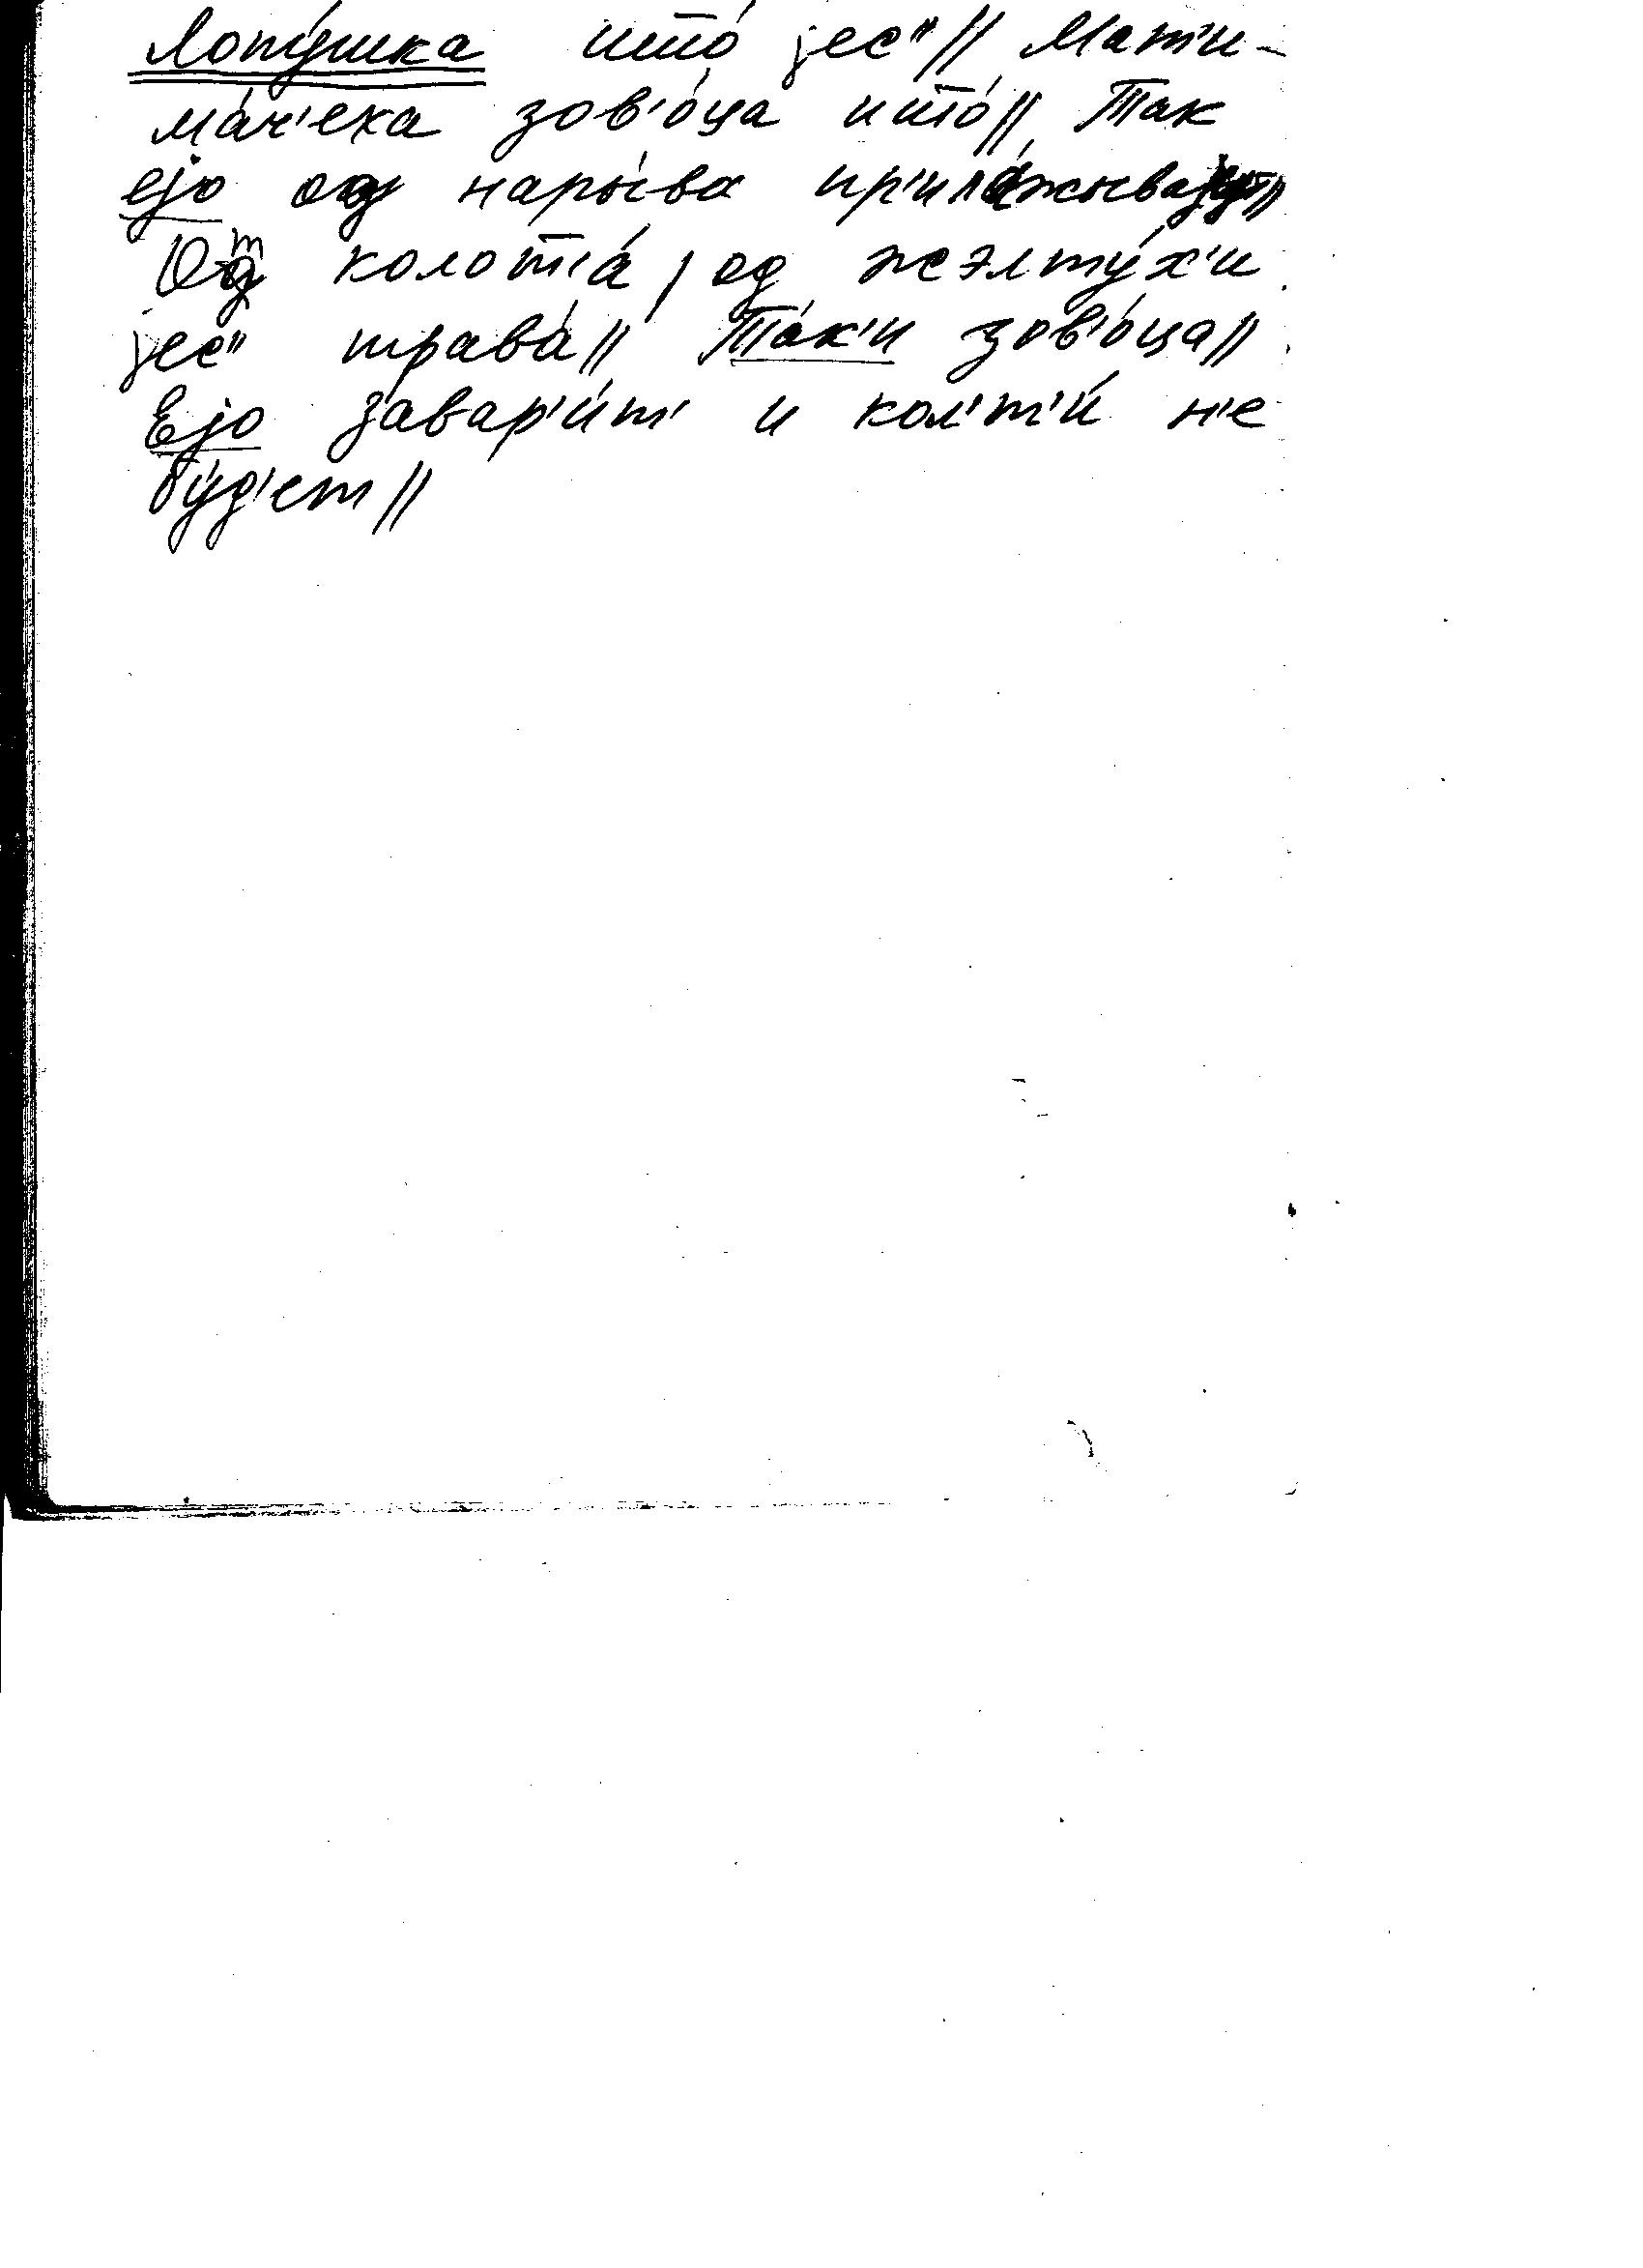 Лопу́шка што́ јес'' // Мат'и-
ма́ч'еха зов'о́ца што́ // Так
ејо од нары́ва пр'ила́жывајут //
От колот'а́, од жэлту́х'и
јес'' трава́ // Та́к'и зов'о́ца //
Ејо завар'и́т' и кол'т'и́ н'е
бу́д'ет //